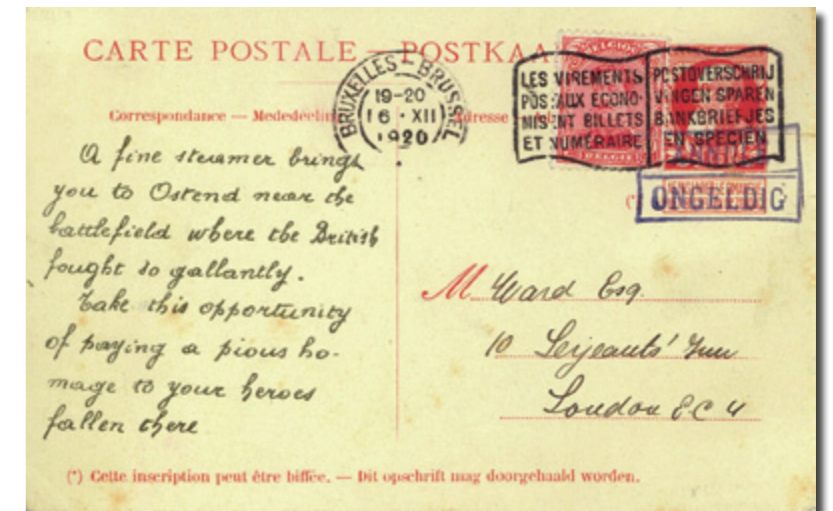 CARTE POSTALE — POSTKAA
BRUXELLES - BRUSSEL
19-20
16 · XII
1920
LES VIREMENTS
POSTAUX ECONO-
MISENT BILLETS
ET NUMÉRAIRE
POSTOVERSCHRIJ
VINGEN SPAREN
BANKBRIEFJES
EN SPECIEN
BELGIQUE
BELGIË
ONGELDIG
Correspondance — Mededeelin
Adresse
A fine steamer brings
you to Ostend near the
battlefield where the British
fought so gallantly.
Take this opportunity
of paying a pious ho-
mage to your heroes
fallen there
M Ward Esq.
10 Serjeants' Inn
London E C 4
(*) Cette inscription peut être biffée. — Dit opschrift mag doorgehaald worden.